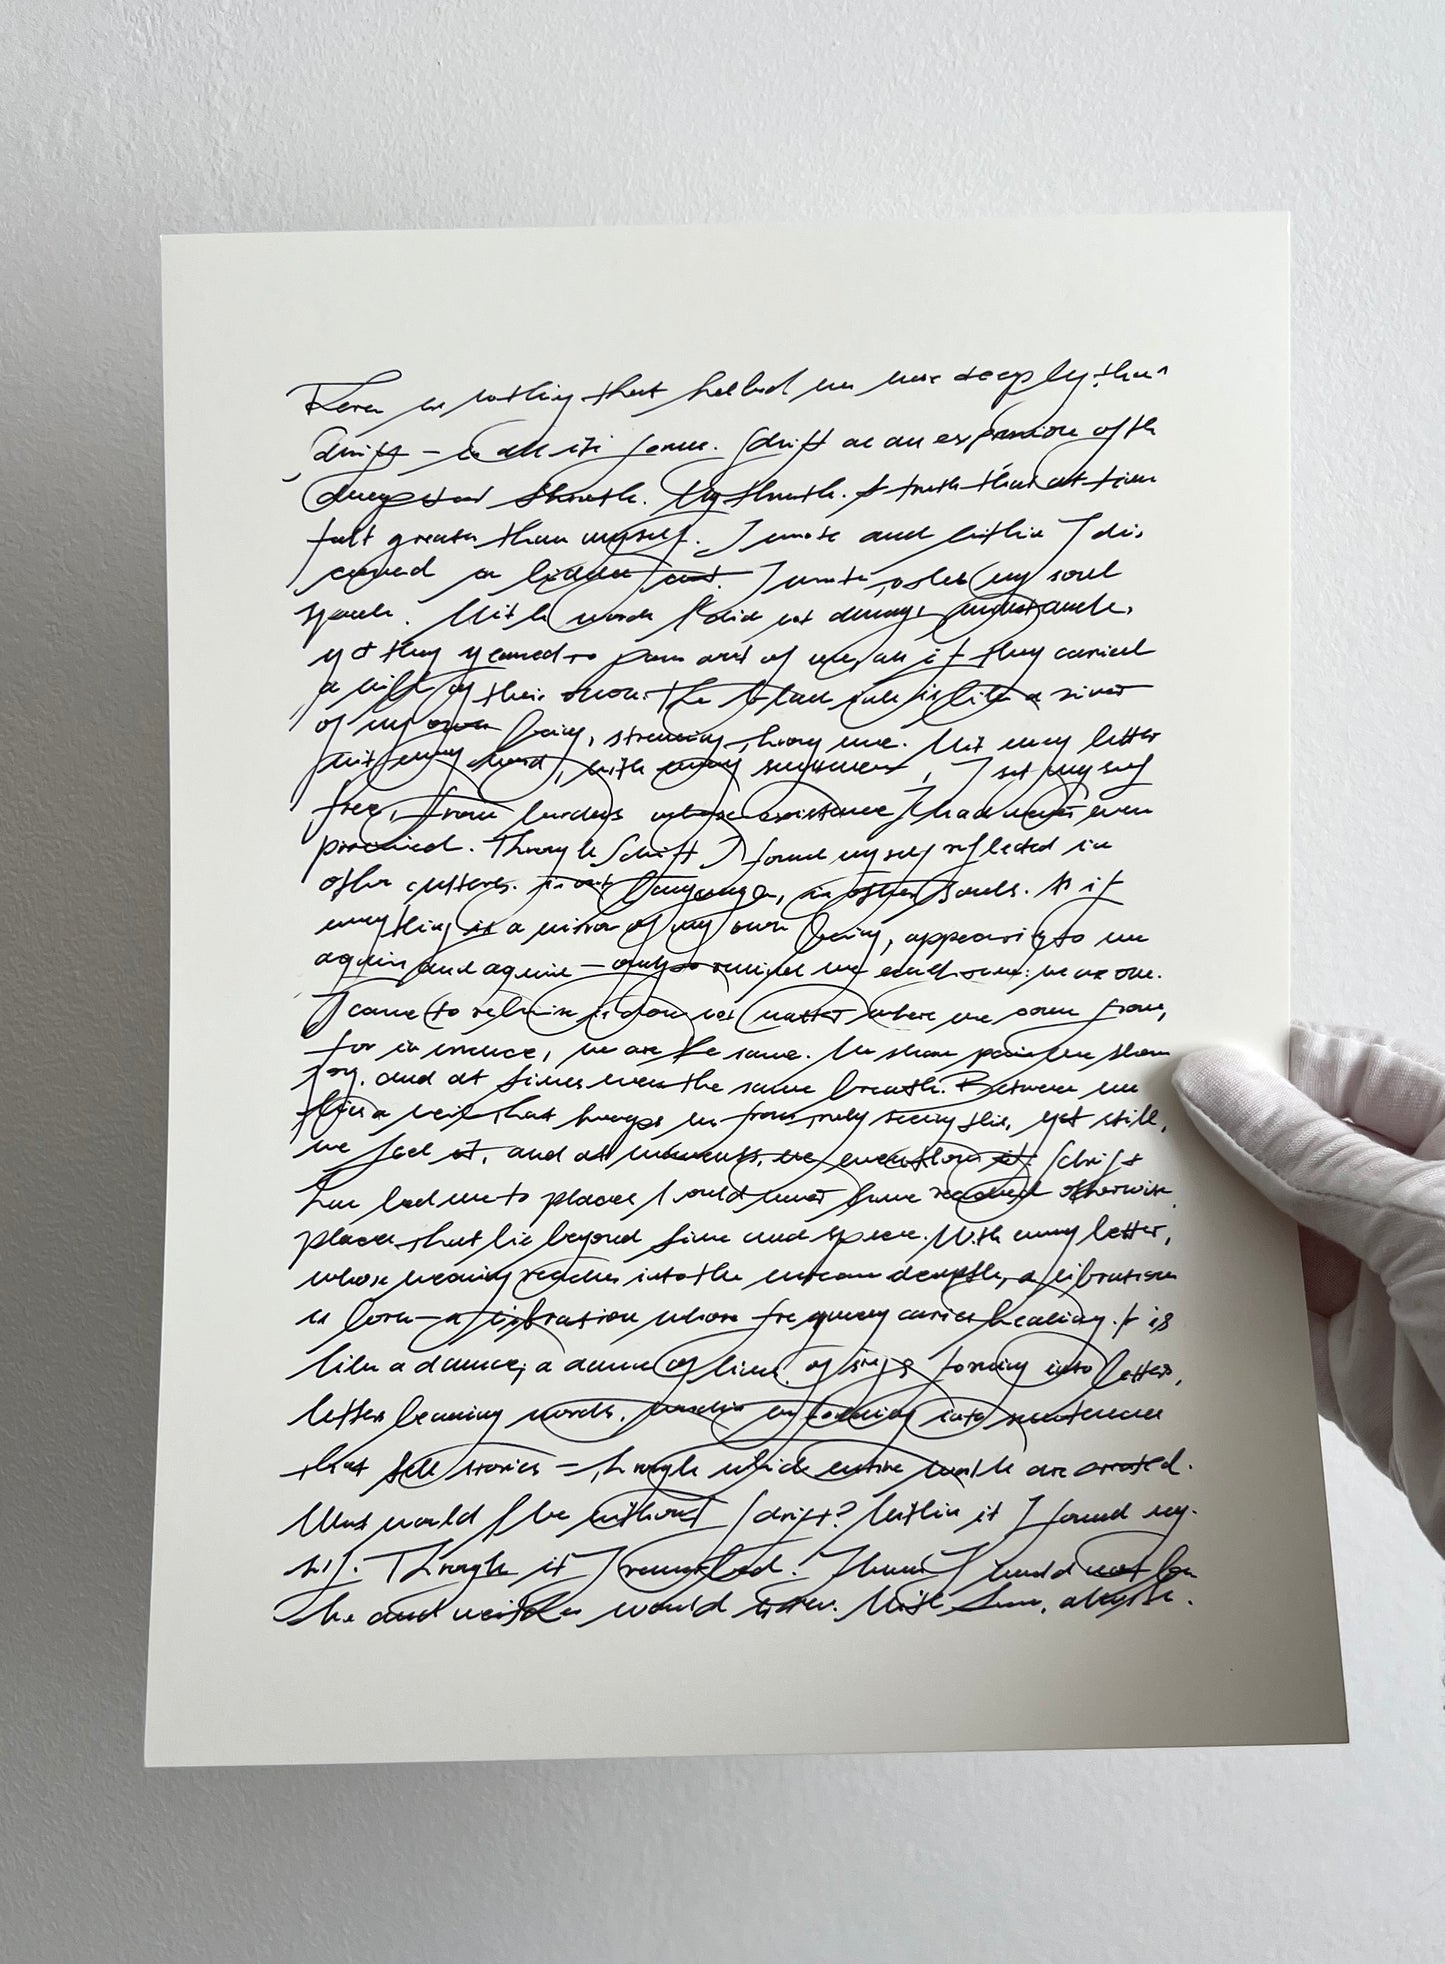 There is nothing that healed me more deeply than
Schrift – in all its forms. Schrift as an expression of the
deepest truth. My truth. A truth that at times
felt greater than myself. I wrote and within I dis-
covered a hidden I wrote, so my soul
spoke. With words I did not always understand,
yet they yearned to pour out of me, as if they carried
a will of their own. The black ink is like a river
of my own being, streaming through me. With every letter
with every word, with every sentence, I set myself
free, from burdens whose existence I had never even
perceived. Through Schrift I found myself reflected in
other cultures. in other languages, in other souls. As if
everything is a mirror of my own being, appearing to me
again and again – only to remind me each time: we are one.
I came to realize it does not matter where we come from,
for in essence, we are the same. We share pain, we share
joy. and at times even the same breath. Between us
lies a veil that keeps us from truly seeing this, yet still,
we feel it, and at moments, we even know it. Schrift
has led me to places I could never have reached otherwise,
places that lie beyond time and space. With every letter,
whose meaning reaches into the unseen depths, a vibration
is born – a vibration whose frequency carries healing. It is
like a dance; a dance of lines. of forming into letters,
letters becoming words. words forming into sentences
that tell stories – through which entire worlds are created.
Who would I be without Schrift? Within it I found my-
self. Through it I revealed. I would not be
he and neither would With